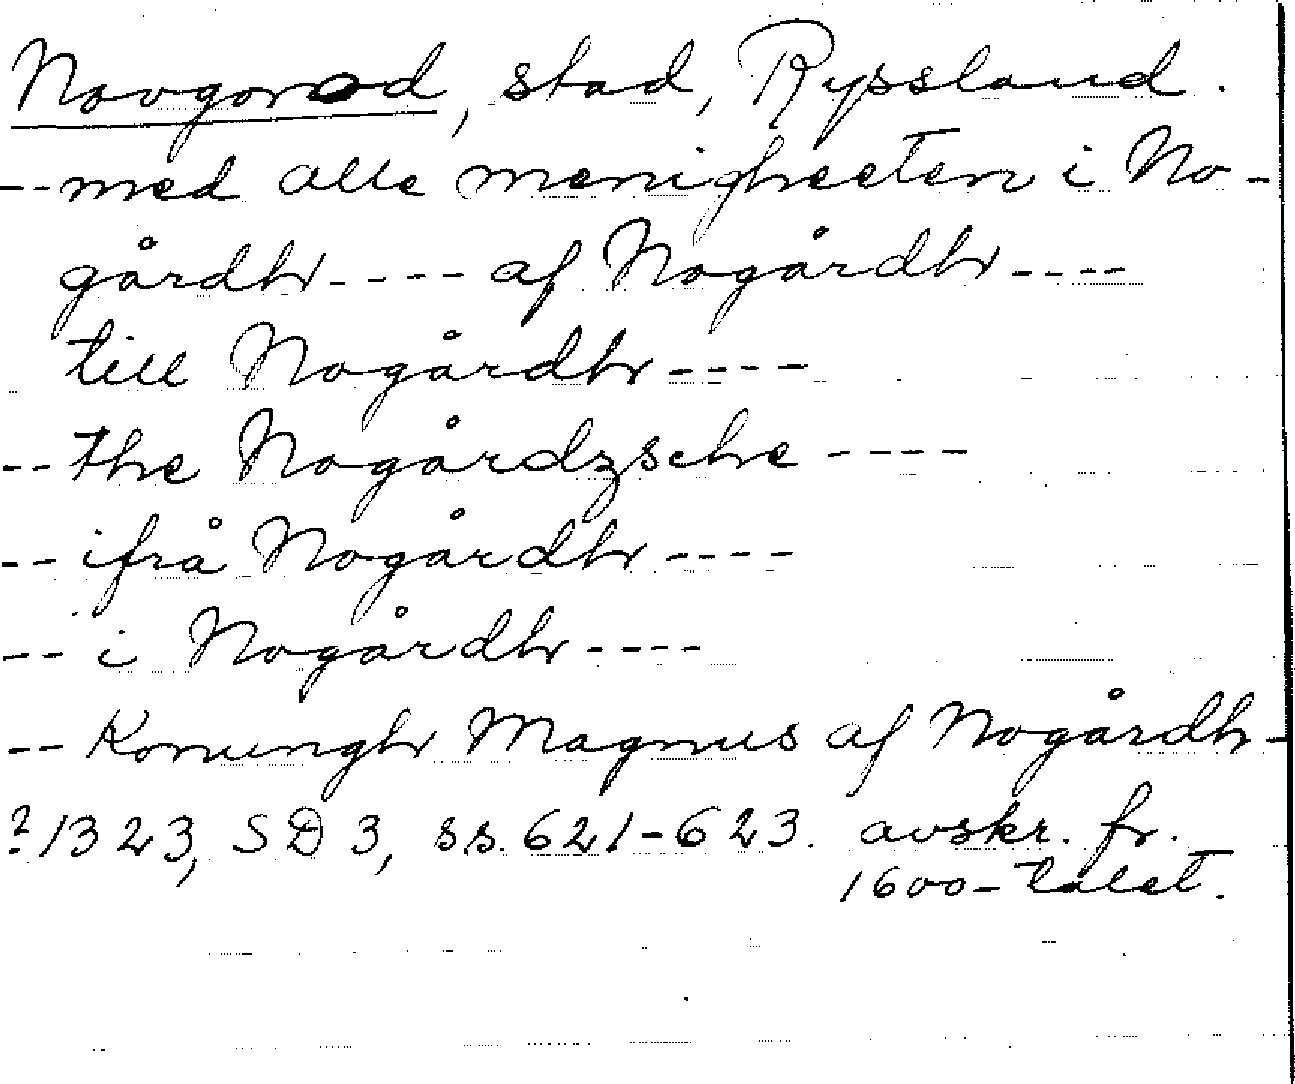 Novgorod, stad, Ryssland.
--med alle menigheeten i No-
gårdh---- af Nogårdh----
till Nogårdh----
--the Nogårdzsche----
--ifrå Nogårdh----
--i Nogårdh----
--Konungh Magnus af Nogårdh-
?1323, SD 3, ss. 621-623. avskr. fr.
1600-talet.